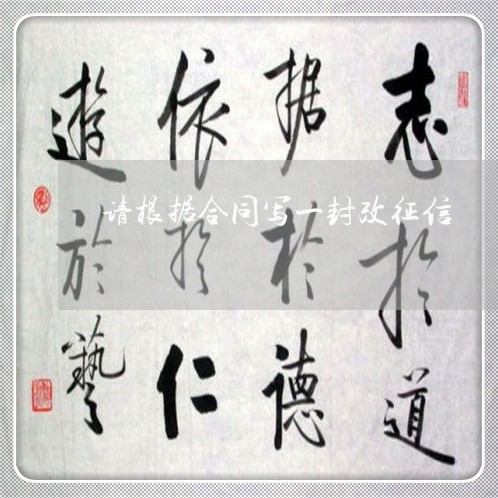 志扵道
据於德
依扵仁
遊於藝
请根据合同写一封改征信